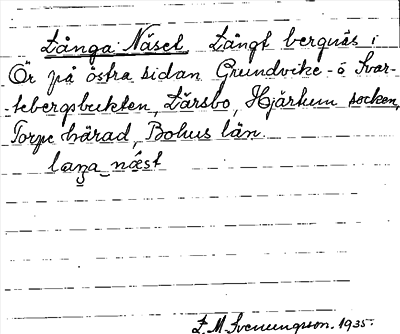 Långa Näset Långt bergnäs i
Ör på östra sidan Grundvike- ö Svar-
-tebergsbukten, Lärsbo, Hjärtum socken,
Torpe härad, Bohus län.
laŋa næst
L. M. Svenungsson. 1935.